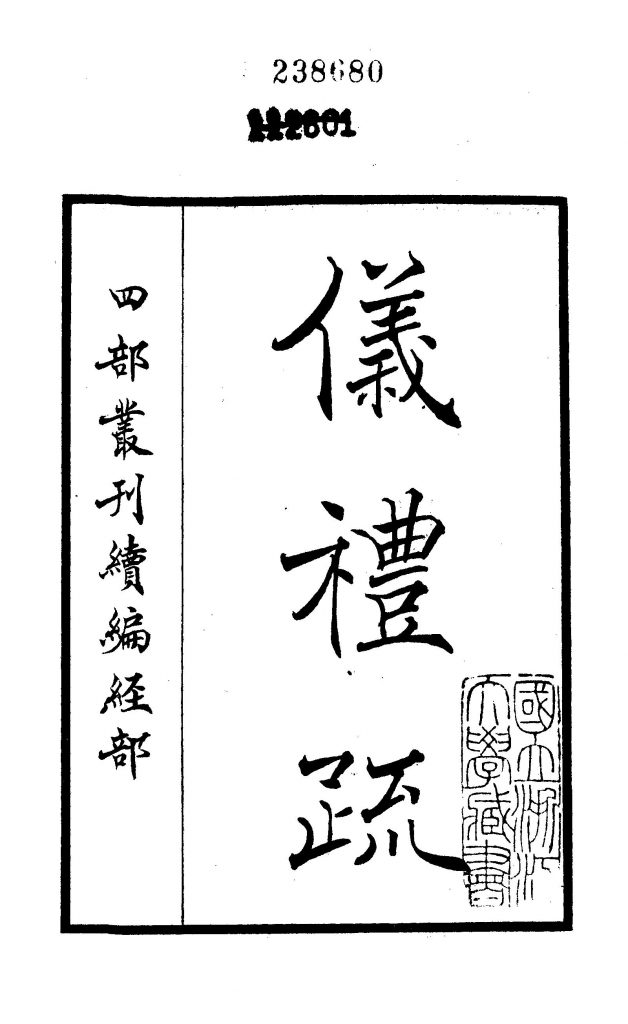 238680
儀禮疏
四部叢刊續編経部
國立浙江
大學藏書